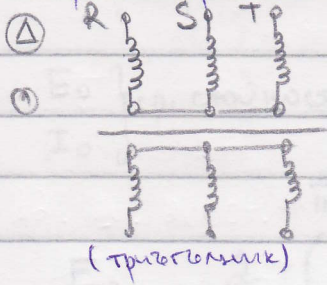 R S T
Δ
(триъгълник)